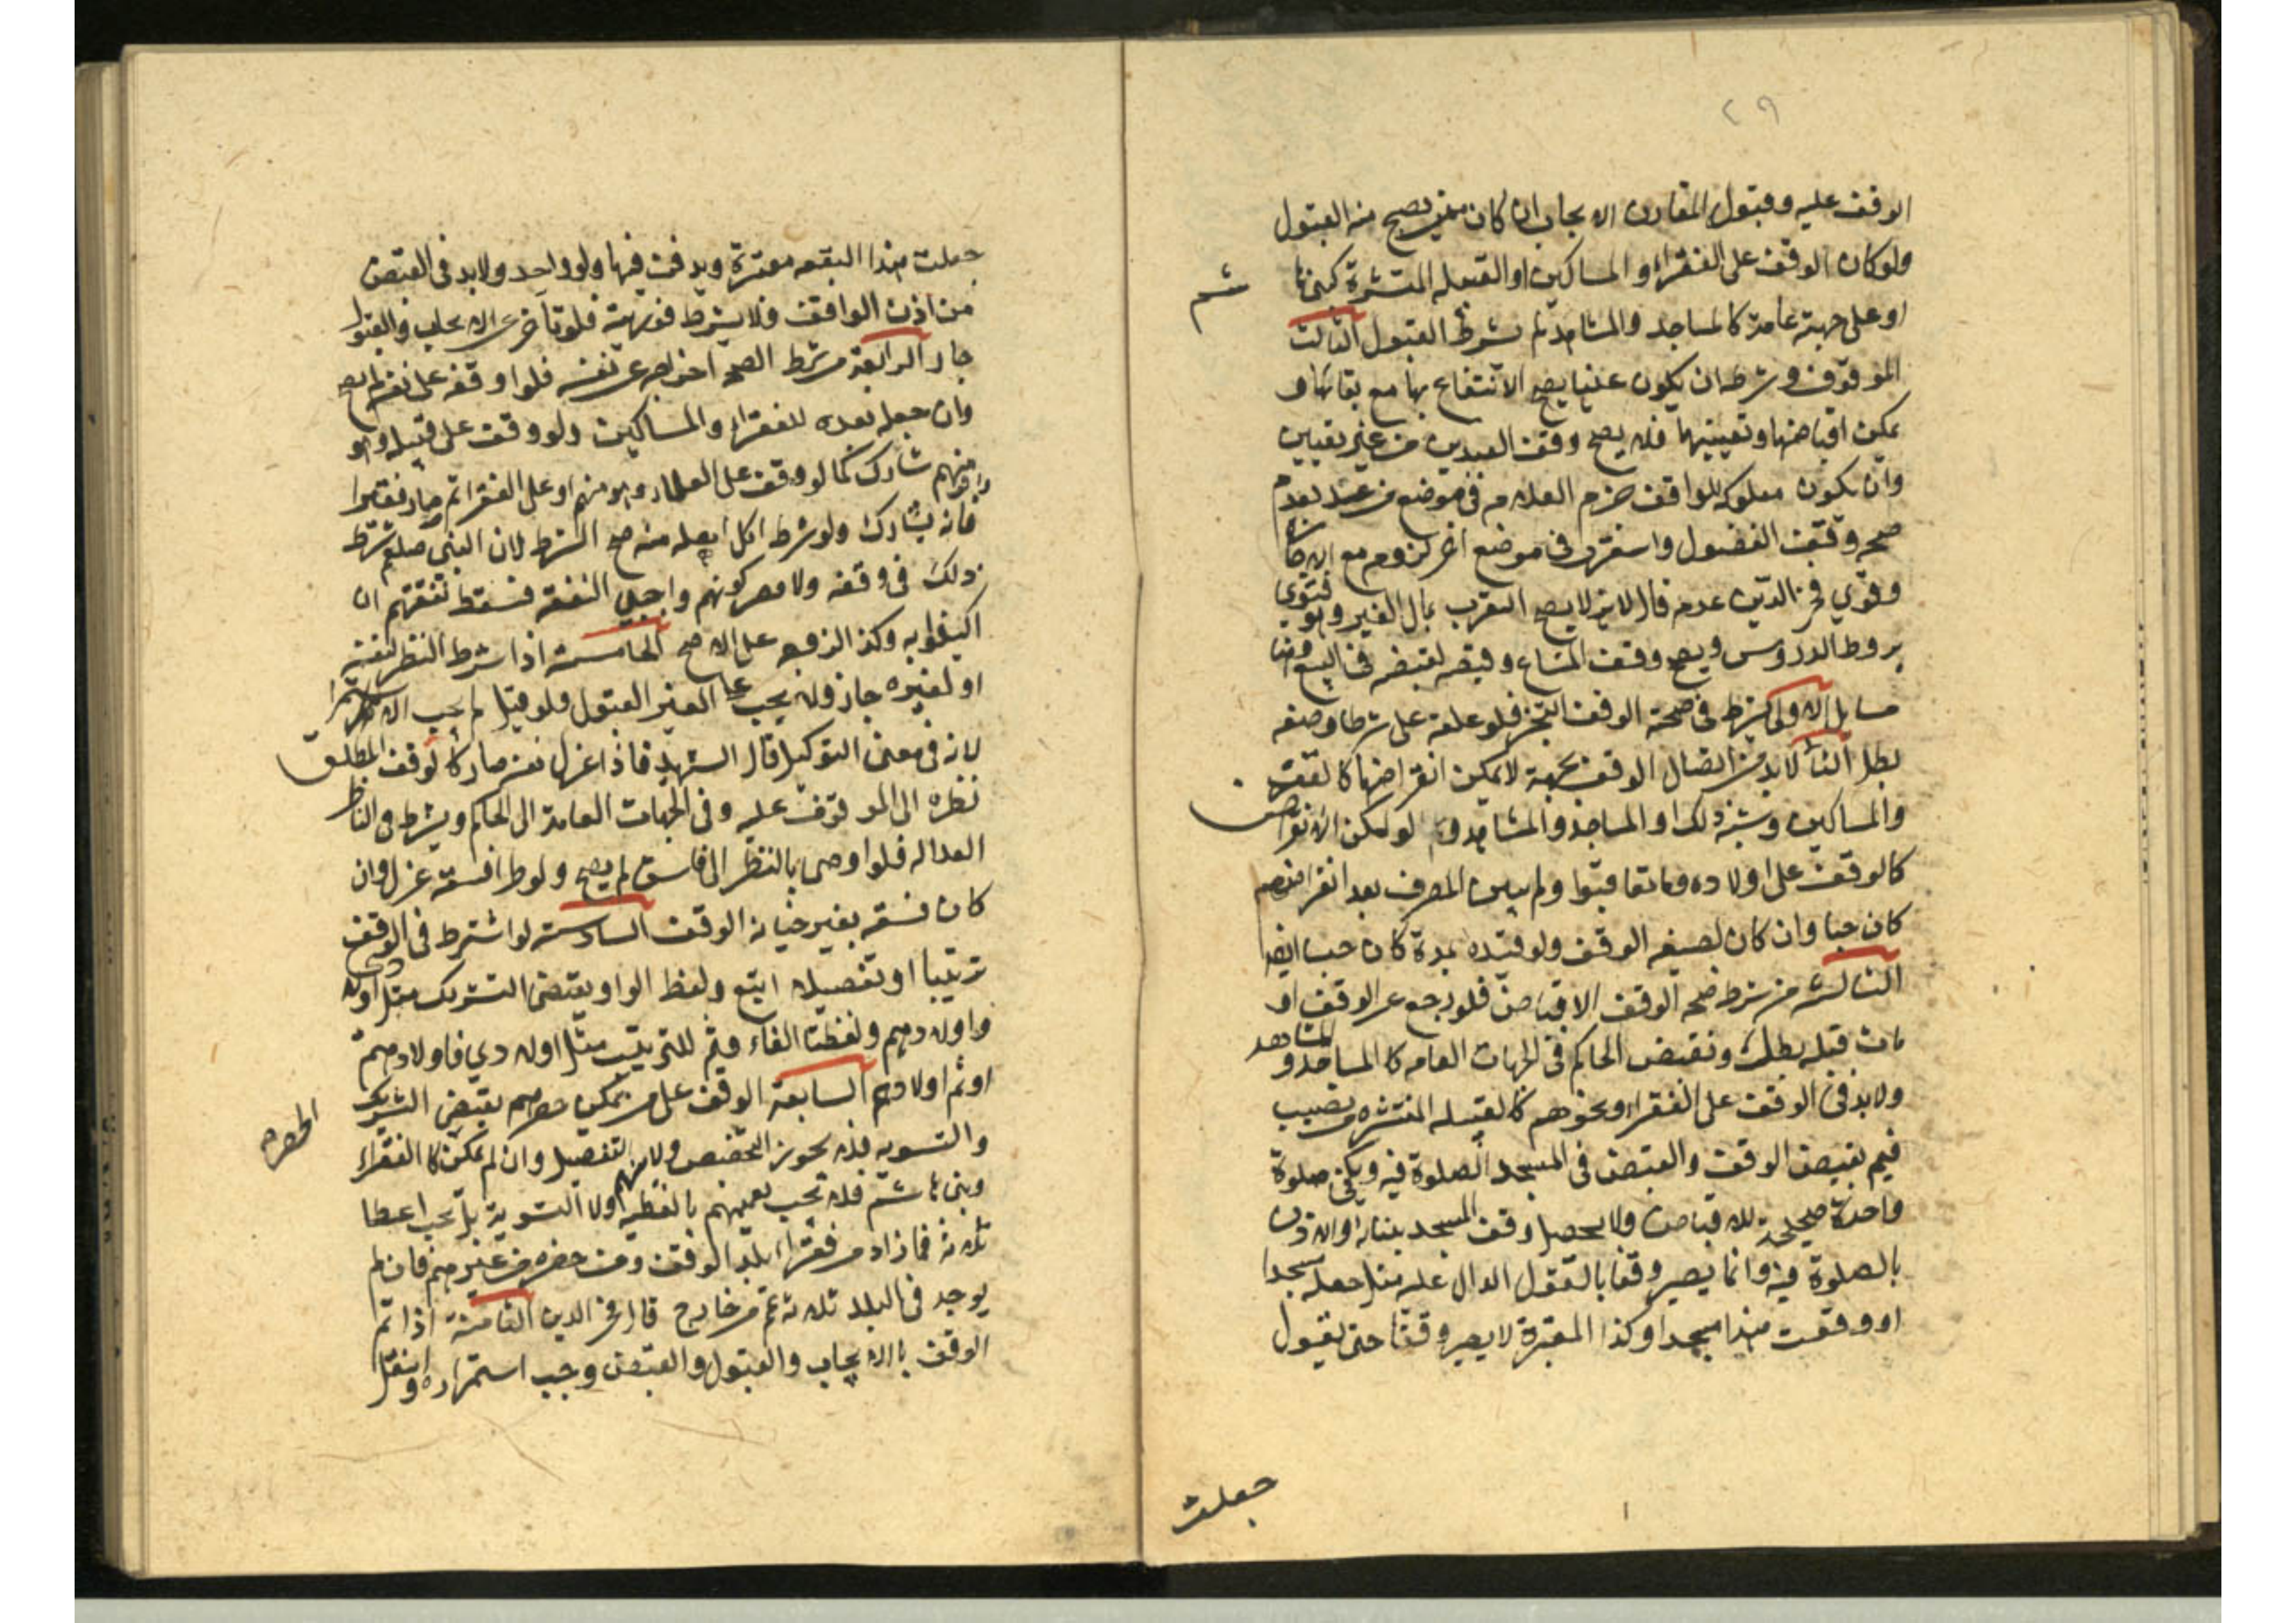 ٢٩
الوقف عليه وقبول المقارن الايجاب ان كان ممن يصح منه القبول
ولو كان الوقف على الفقراء والمساكين او القبيله المنتشرة كبنى ها
شم
او على جهة عامة كالمساجد والمشاهد لم يشرط القبول الثالث
الموقوف وشرطه ان يكون عينا يصح الانتفاع بها مع بقائها و
يمكن اقباضها وتعيينها فلا يصح وقف العبدين من غير تعيين
وان يكون مملوكه للواقف جزم العلامه فى موضع من بعدم
صحه وقف الفضول واستقرب فى موضع اخر لزومه مع الاجازة
وقوي فخر الدين عدمه قال لانه لا يصح التقرب بمال الغير وهو فتوى
الدروس ويصح وقف المشاع وقبضه كقبضه فى البيع وهنا
مسايل الاولى يشرط فى صحة الوقف التنجز فلو علقه على شرط او صفه
بطل الثانيه لابد من اتصال الوقف بجهة لا يمكن انقراضها كالفقراء
والمساكين وشبه ذلك او المساجد والمشاهد ولو امكن الانقراض
كالوقف على اولاده وما تعاقبوا ولم يبين المصرف بعد انقراضهم
كان حبسا وان كان لصيغه الوقف ولو قيده بمدة كان حبسا ايضا
الثالثه من شرط صحه الوقف الاقباض فلو رجع عن الوقف او
مات قبله بطل ويقبض الحاكم فى الجهات العامه كالمساجد و المشاهد
ولابد فى الوقف على الفقراء ونحوهم كالقبيله المنتشره من نصيب
قيم يقبض الوقف والقبض فى المسجد الصلوة فيه ويكفى صلوة
واحدة صحيحة للاقباض ولا يحصل وقف المسجد ببنائه او الاذن
بالصلوة فيه وانما يصير وقفا بالقول الدال عليه مثل جعله مسجدا
او وقفت هذا مسجدا وكذا المقبرة لا يصير وقفا حتى يقول
جعلت
جعلت هذا البقعه مقبرة ويدفن فيها ولو واحد ولابد فى القبض
من اذن الواقف ولا يشرط فوريته فلو تأخر عن الايجاب والقبول
جاز الرابعة من شرط الصحه اخراجه عن نفسه فلو اوقفه على نفسه لم يصح
وان جعله بعده للفقراء والمساكين ولو وقف على قبيله وهو
منهم شارك كما لو وقف على العلماء وهو منهم او على الفقراء ثم صار فقيرا
فانه يشارك ولو شرط اكل اهله منه صح الشرط لان النبى صلعم شرط
ذلك فى وقفه ولا مصر كونهم واجبى النفقه فتسقط نفقتهم ان
اكتفوا به وكذا الزوجه على الاصح الخامسة اذا شرط النظر لنفسه
او لغيره جاز ولا يجب على الغير القبول ولو قبل لم يجب الاستمرار
لانه فى معنى التوكيل قال الشهيد فاذا عزل نفسه صار كالوقف المطلق
نظره الى الموقوف عليه وفى الجهات العامة الى الحاكم ويشرط فى الناظر
العداله فلو اوصى بالنظر الى فاسق لم يصح ولو طرا فسقه عزل وان
كان فسقه بغير خيانة الوقف السادسة لو اشترط فى الوقف
ترتيبا او تفصيلا اتبع ولفظ الواو يقتضى التشريك مثل اولادى
واولادهم ولفظتا الفاء وثم للترتيب مثل اولادي فاولادهم
او ثم اولادهم السابعة الوقف على من يمكن حصرهم يقتضى التشريك
والتسويه فلا يجوز التخصيص ولا التفضيل وان لم يمكن كالفقراء
الحصرهم
وبنى هاشم فلا يجب تعميمهم بالعطيه ولا التسوية بل يجب اعطا
ثلاثة فما زاد من فقراء بلد الوقف ومن حضره من غيرهم فان لم
يوجد فى البلد ثلاثه تمم من خارج قال فخر الدين الثامنة اذا تم
الوقف بالايجاب والقبول والقبض وجب استمراره وانتقل